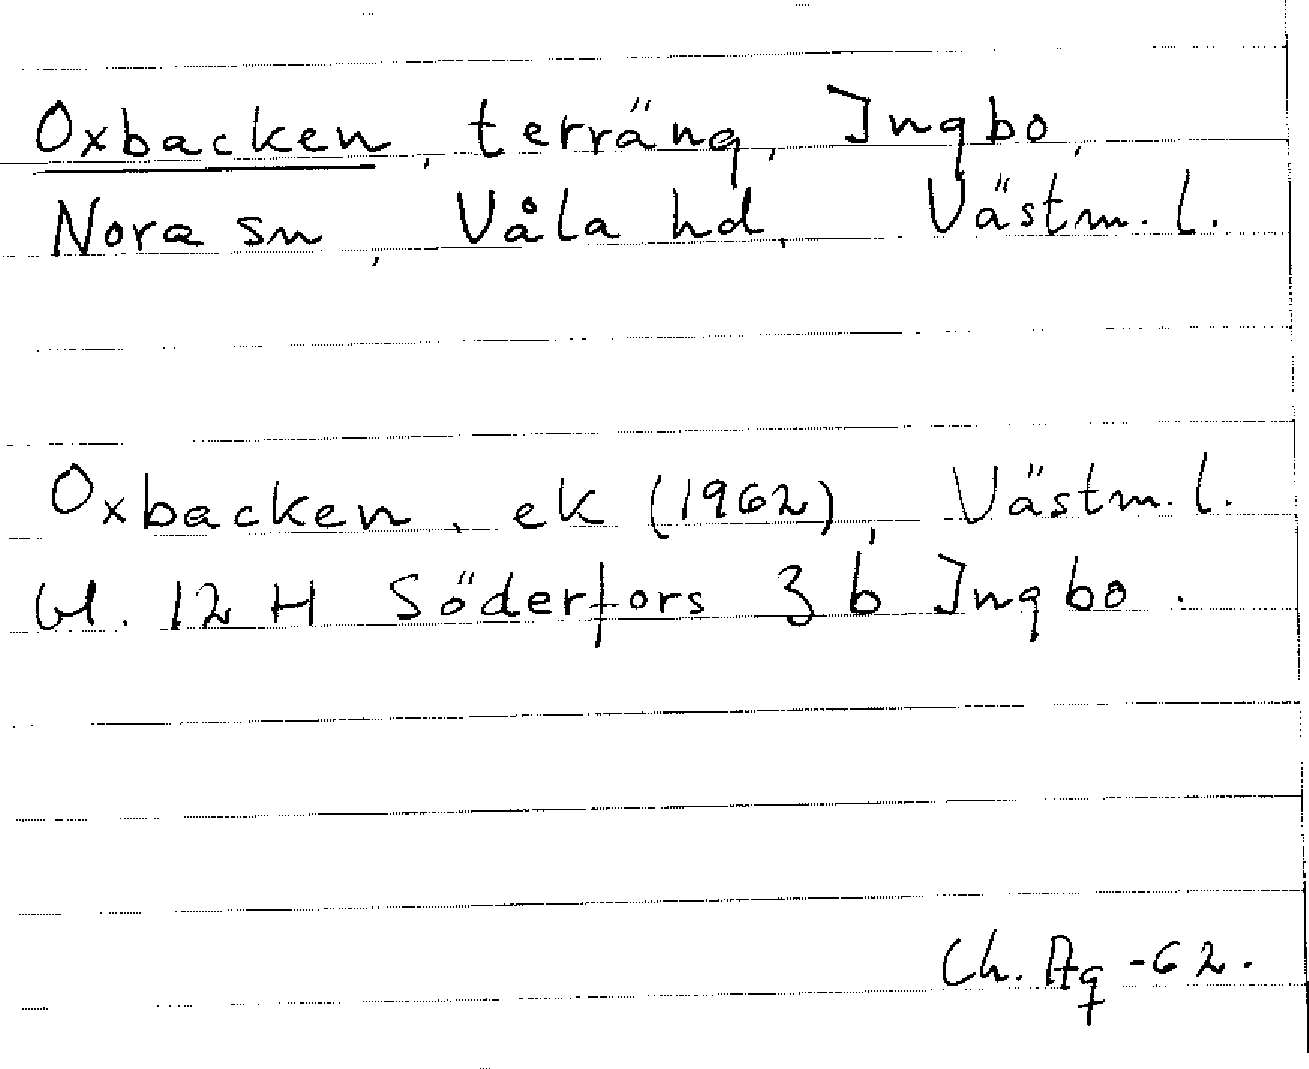 Oxbacken, terräng, Ingbo,
Nora sn, Våla hd, Västm. l.
Oxbacken, ek (1962), Västm. l.
bl. 12 H Söderfors 3 b Ingbo.
Ch. -62.